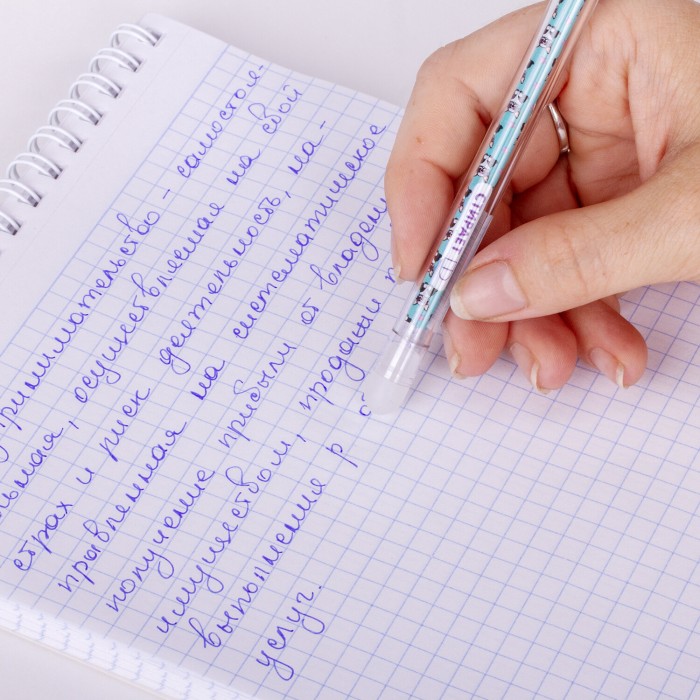 тринимательство - самостоя-
льная, осуществляемая на свой
страх и риск деятельность, на-
правленная на систематическое
получение прибыли от владени
имуществом, продажи
выполнения р о
услуг.
СТИРАЕТ